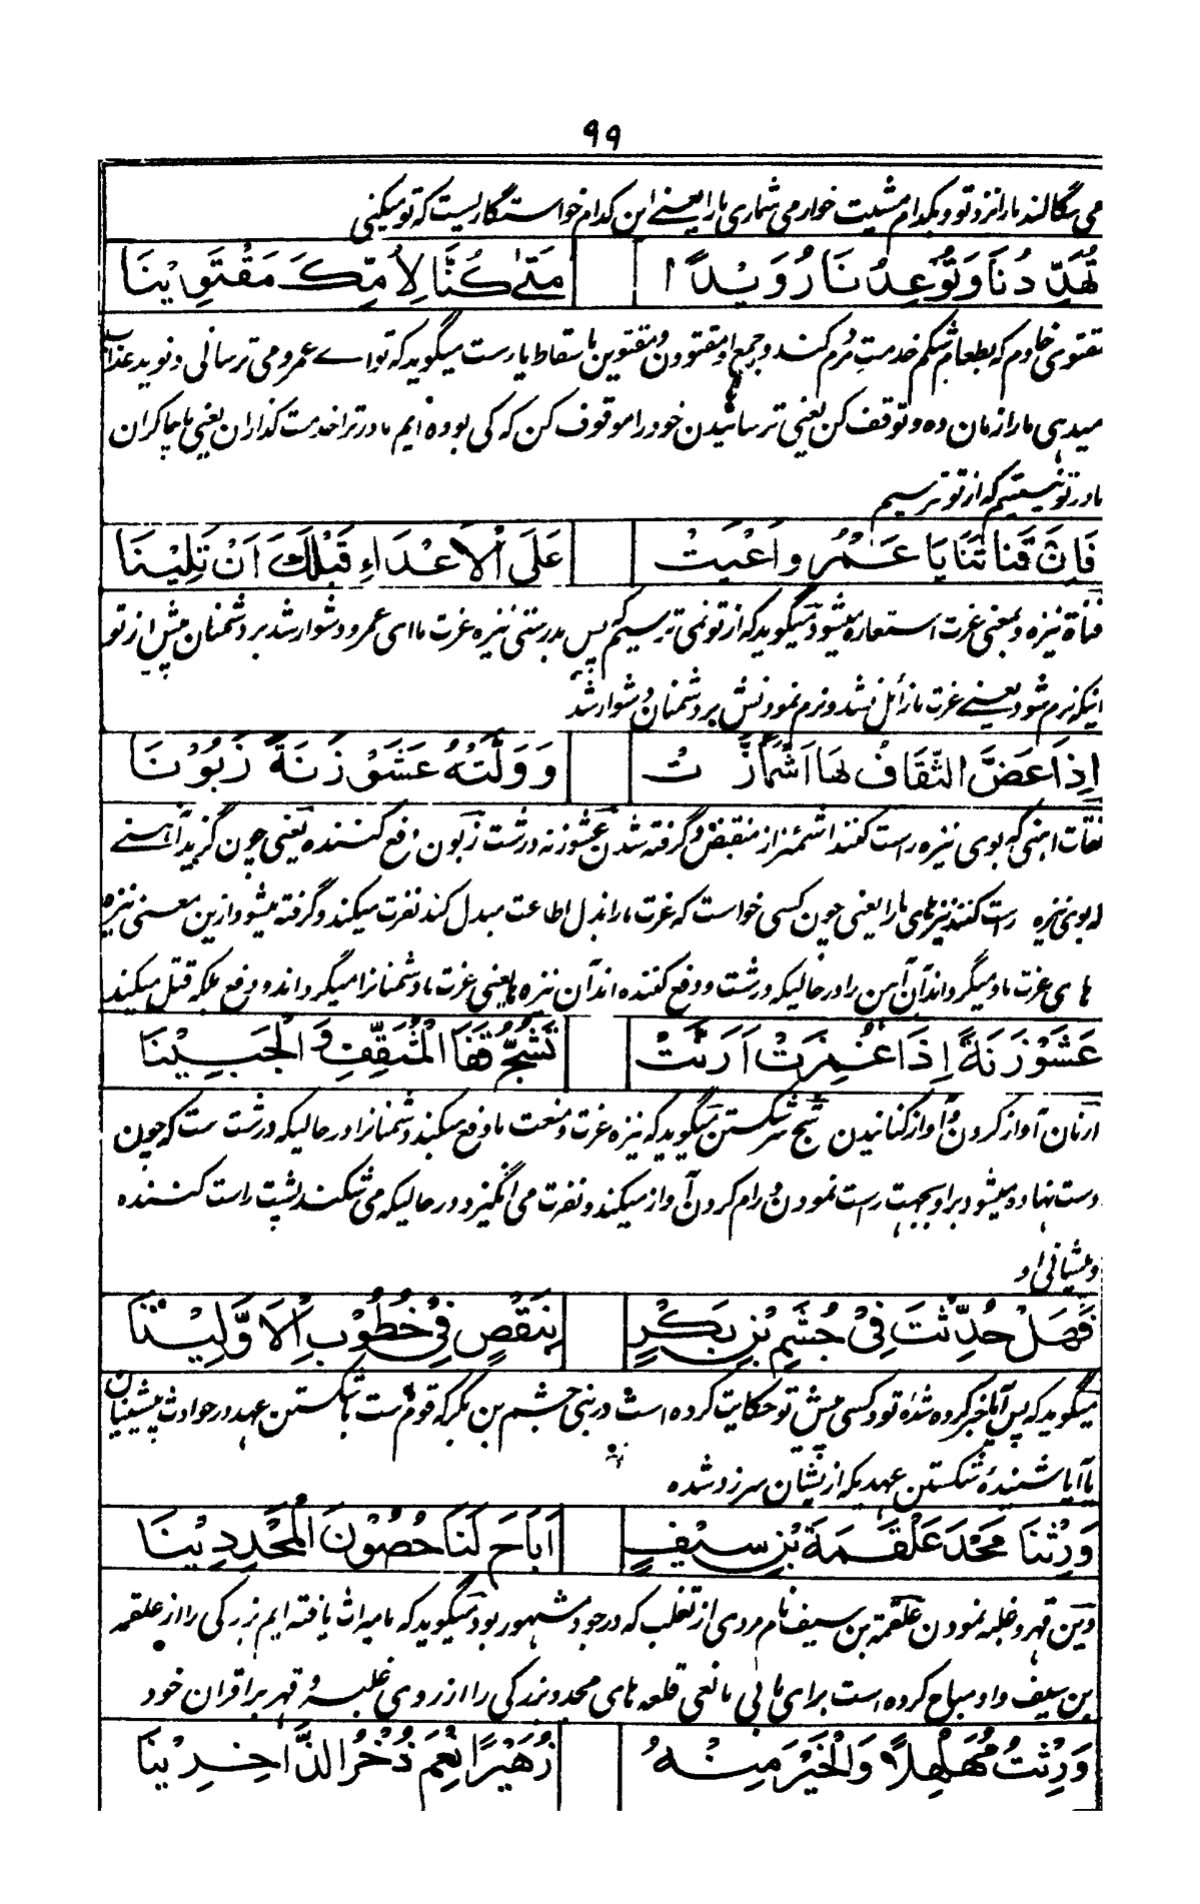 ۹۹
می سگالند ما را نزد تو و بکدام مشیت خوار می شماری ما را یعنے این کدام خواستگاریست که تو میکنی
تُهَدِّدُنَا وَتُوْعِدُنَا رُوَيْدًا مَتٰى كُنَّا لِاُمِّكَ مَقْتَوِيْنَا
مقتوی خادم که بطعام شکم خدمت مردم کند و جمع او مقتوون و مقتوین باسقاط یا رست میگوید که تو اے عمرو می ترسانی و نوید عذاب
میدہی ما را زمان ده و توقف کن یعنی ترسانیدن خود را موقوف کن که کی بوده ایم مادر ترا خدمت گذاران یعنی ما چاکران
مادر تو نیستیم که از تو ترسیم
فَاِنَّ قَنَاتَنَا يَا عَمْرُو اَعْيَتْ عَلَى الْاَعْدَاءِ قَبْلَكَ اَنْ تَلِيْنَا
قناة نیزه و بمعنی عزت استعاره میشود میگوید که از تو نمی ترسیم پس بدرستی نیزه عزت ما ای عمرو دشوار شد بر دشمنان پیش از تو
اینکه نرم شود یعنے عزت ما زائل نشد و نرم نمودنش بر دشمنان دشوار شد
اِذَا عَضَّ الثِّقَافُ لَهَا اشْمَاَزَّتْ وَوَلَّتْهُ عَشَوْزَنَةً زَبُوْنَا
ثقاف اهنی که بوی نیزه راست کنند اشمئزاز منقبض و گرفته شدن عشوزنه درشت زبون دفع کننده یعنی چون گزید آهنے
که بوی نیزه راست کنند نیزہای ما را یعنی چون کسی خواست که عزت ما را بذل اطاعت مبدل کند نفرت میکند و گرفته میشود ازین معنی نیزه
های عزت ما و میگرداند آن آهن را در حالیکه درشت و دفع کننده اند آن نیزه ها یعنی عزت ما دشمنانرا میگرداند و دفع بلکه قتل میکند
عَشَوْزَنَةً اِذَا غُمِزَتْ اَرَنَّتْ تَشُجُّ قَفَا الْمُثَقِّفِ وَ الْجَبِيْنَا
ارنان آواز کردن و آواز کنانیدن شج سر شکستن میگوید که نیزه عزت و منعت ما دفع میکند دشمنانرا در حالیکه درشت ست که چون
دست نهاده میشود برا و بجهت راست نمودن و رام کردن آواز میکند و نفرت می انگیزد و در حالیکه می شکند پشت راست کننده
و پیشانی او
فَهَلْ حُدِّثْتَ فِیْ جُشَمِ بْنِ بَكْرٍ بِنَقْصٍ فِیْ خُطُوْبِ الْاَوَّلِيْنَا
میگوید که پس آیا خبر کرده شدۂ تو و کسی پیش تو حکایت کرده است در بنی جشم بن بکر که قوم ست بشکستن عهد در حوادث پیشینیان
یا آیا شنیدۂ شکستن عهدیکه از یشان سرزد شده
وَرِثْنَا مَجْدَ عَلْقَمَةَ بْنِ سَيْفٍ اَبَاحَ لَنَا حُصُوْنَ الْمَجْدِ دِيْنَا
دین قهر و غلبه نمودن علقمة بن سیف نام مردی از تغلب که در جود مشهور بود میگوید که ما میراث یافته ایم بزرگی را از علقمه
بن سیف و او مباح کرده است برای ما بی مانعی قلعه های مجد و بزرگی را از روی غلبه و قهر بر اقران خود
وَرِثْتُ مُهَلْهِلًا وَالْخَيْرَ مِنْهُ زُهَيْرًا نِعْمَ ذُخْرُ الذَّاخِرِيْنَا